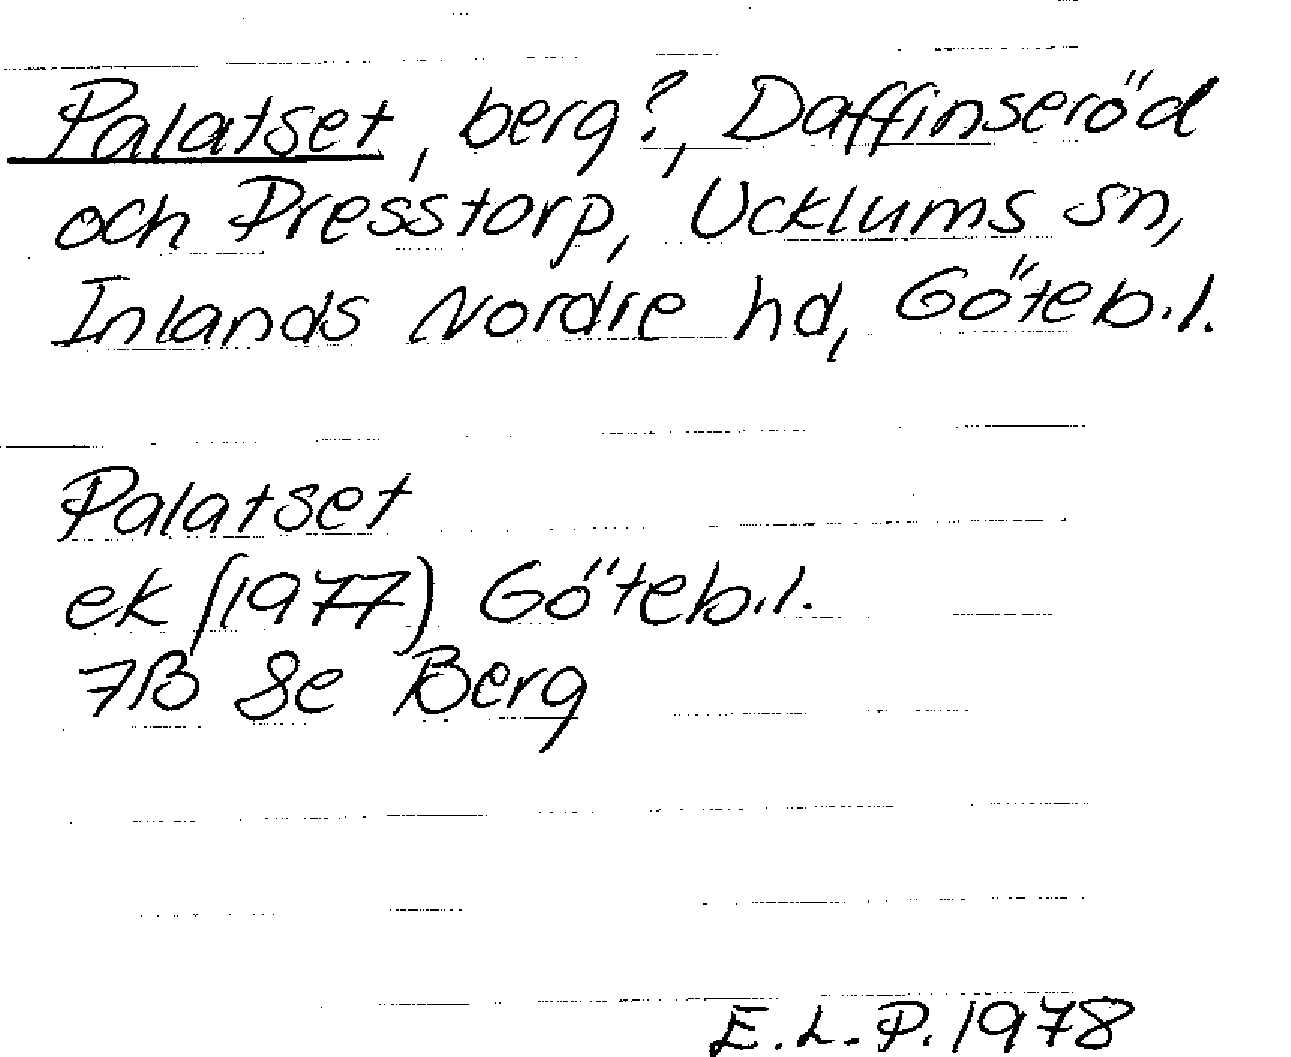 Palatset, berg?, Daffinseröd
och Presstorp, Ucklums sn,
Inlands Nordre hd, Göteb.l.
Palatset
ek (1977) Göteb.l.
7B 8e Berg
E.L.P. 1978